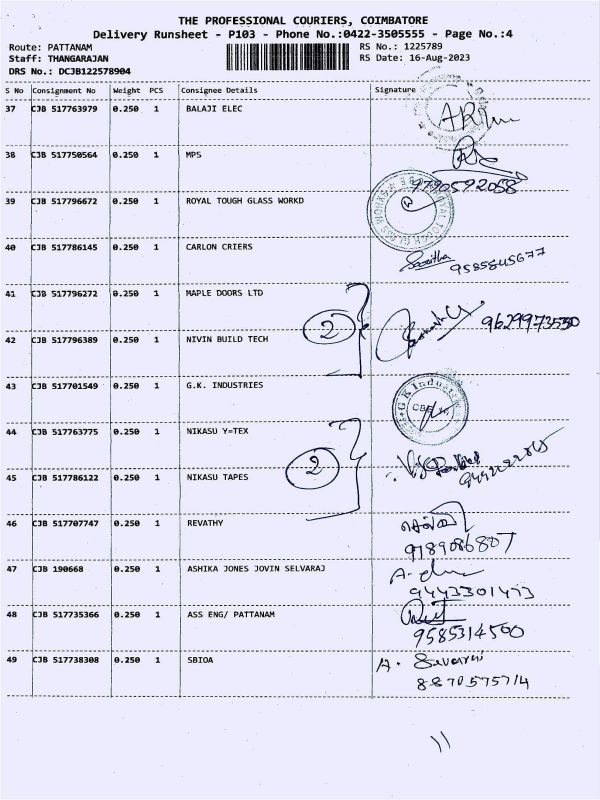 THE PROFESSIONAL COURIERS, COIMBATORE
Delivery Runsheet - P103 - Phone No.:0422-3505555 - Page No.:4
Route: PATTANAM RS No.: 1225789
Staff: THANGARAJAN RS Date: 16-Aug-2023
DRS No.: DCJB122578904
S No Consignment No Weight PCS Consignee Details Signature
37 CJB 517763979 0.250 1 BALAJI ELEC
38 CJB 517750564 0.250 1 MPS
9790592058
39 CJB 517796672 0.250 1 ROYAL TOUGH GLASS WORKD
40 CJB 517786145 0.250 1 CARLON CRIERS
9585845677
41 CJB 517796272 0.250 1 MAPLE DOORS LTD
2 9629973530
42 CJB 517796389 0.250 1 NIVIN BUILD TECH
43 CJB 517701549 0.250 1 G.K. INDUSTRIES
44 CJB 517763775 0.250 1 NIKASU Y=TEX
2
45 CJB 517786122 0.250 1 NIKASU TAPES
46 CJB 517707747 0.250 1 REVATHY
9789086807
47 CJB 190668 0.250 1 ASHIKA JONES JOVIN SELVARAJ
9443301473
48 CJB 517735366 0.250 1 ASS ENG/ PATTANAM
9585314500
49 CJB 517738308 0.250 1 SBIOA
8870575714